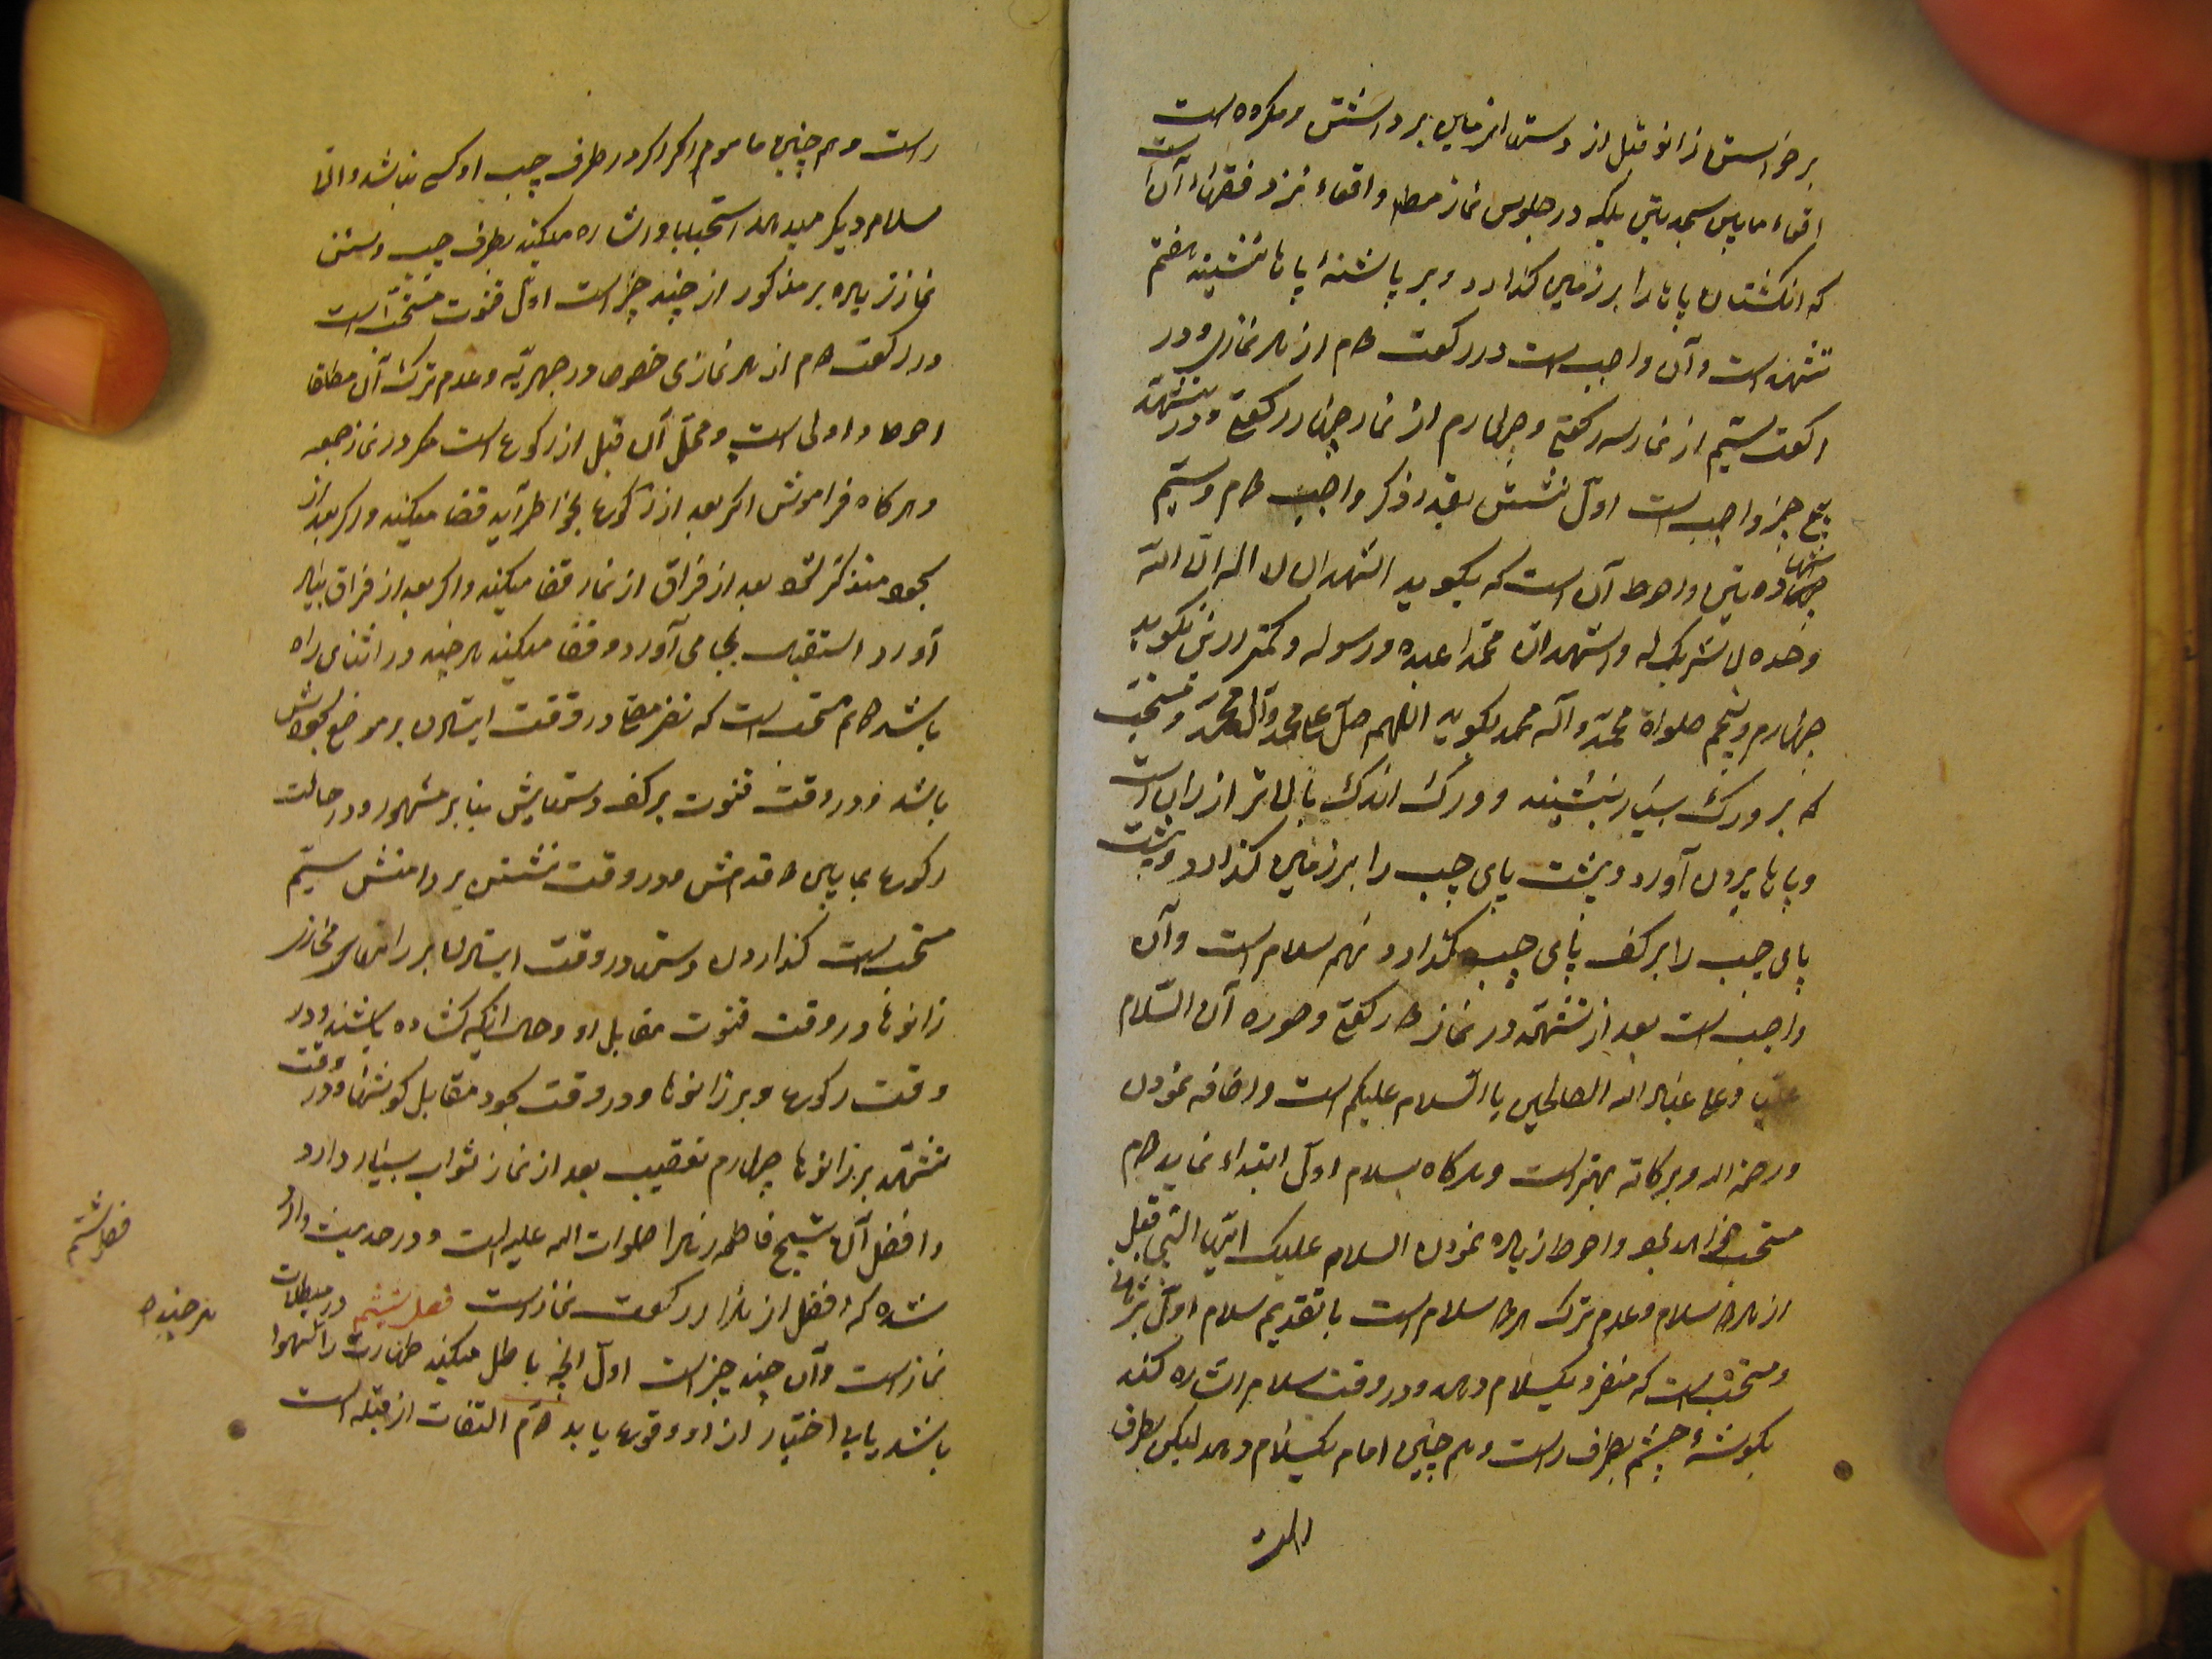 برخواستن زانو قبل از دستها از زمین برداشتن و مکروه است
اقعاء مابین سجدتین بلکه در جلوس نماز مطلقا و اقعاء نزد فقهاء آن است
که انگشتان پاها را بر زمین گذارد و بر پاشنهٔ پاها نشیند هفتم
تشهد است و آن واجب است در رکعت دوم از هر نمازی و در
رکعت سیّم از نماز سه رکعتی و چهارم از نماز چهار رکعتی و در تشهّد
پنج چیز واجب است اوّل نشستن بقدر ذکر واجب دوم و سیّم
شهادتین و احوط آن است که بگوید اشهد ان لا اله الّا اللّه
وحده لا شریک له و اشهد انّ محمّدا عبده و رسوله و کمتر ازین نگوید
چهارم و پنجم صلواة محمّد و آله محمد بگوید اللهم صلّ علی محمّد و آل محمّد و مستحبّ
که بر ورک یسار بنشیند و ورک اندک بالاتر از ران است
و پاها بیرون آورد و پشت پای چپ را بر زمین گذارد و پشت
پای چپ را بر کف پای چپ گذارد نهم سلام است و آن
واجب است بعد از تشهّد در نماز دو رکعتی و صوره آن السّلام
علینا و علی عباد الله الصالحین یا السّلام علیکم است و اضافه نمودن
و رحمة الله و برکاته بهتر است و هر گاه بسلام اوّل ابتداء نماید دوم
مستحب خواهد بود و احوط زیاده نمودن السلام علیک ایّها النّبی قبل
از هر دو سلام و عدم ترک هر دو سلام است با تقدیم سلام اوّل
و مستحبّ است که منفرد یک سلام دهد و در وقت سلام اشاره کند
بگوشهٔ چشم بطرف راست و هم چنین امام یک سلام دهد لیکن بطرف
راست
راست و هم چنین ماموم اگر در طرف چپ او کسی نباشد و الّا
سلام دیگر میدهد استحبابا و اشاره میکند بطرف چپ و سنن
نماز زیاده بر مذکور از چند چیز است اوّل قنوت مستحبّ است
در رکعت دوم از هر نمازی خصوصا در جهریّه و عدم ترک آن مطلقا
احوط و اولی است و محلّ آن قبل از رکوع است مگر در نماز جمعه
و هر گاه فراموش اگر بعد از رکوع بخواطر آید قضا میکند و اگر بعد از
سجود متذکّر شود بعد از فراق از نماز قضا میکند و اگر بعد از فراق بیاد
آورد استقبال بجا می آورد و قضا میکند هر چند در اثنای راه
باشد دوم مستحبّ است که نظر مصلی در وقت ایستادن بر موضع سجودش
باشد و در وقت قنوت بر کف دستهایش بنابر مشهور و در حالت
رکوع بمابین دو قدمش و در وقت نشستن بر دامنش سیّم
مستحبّ است گذاردن دستها در وقت ایستادن بر رانهای محاذی
زانوها و در وقت قنوت مقابل رو و حال آنکه گشاده باشند و در
وقت رکوع و بر زانوها و در وقت سجود مقابل گوشها و در وقت
تشهّد بر زانوها چهارم تعقیب بعد از نماز ثواب بسیار دارد
و افضل آن تسبیح فاطمه زهرا صلوات الله علیها است و در حدیث وارد
شده که افضل از هزار رکعت نماز است فصل ششم در مبطلات
نماز است و آن چند چیز است اوّل آنچه باطل میکند طهارت را سهوا
باشد یا بی اختیار از او وقوع یابد دوّم التفات از قبله است
فصل ششم
هر چند